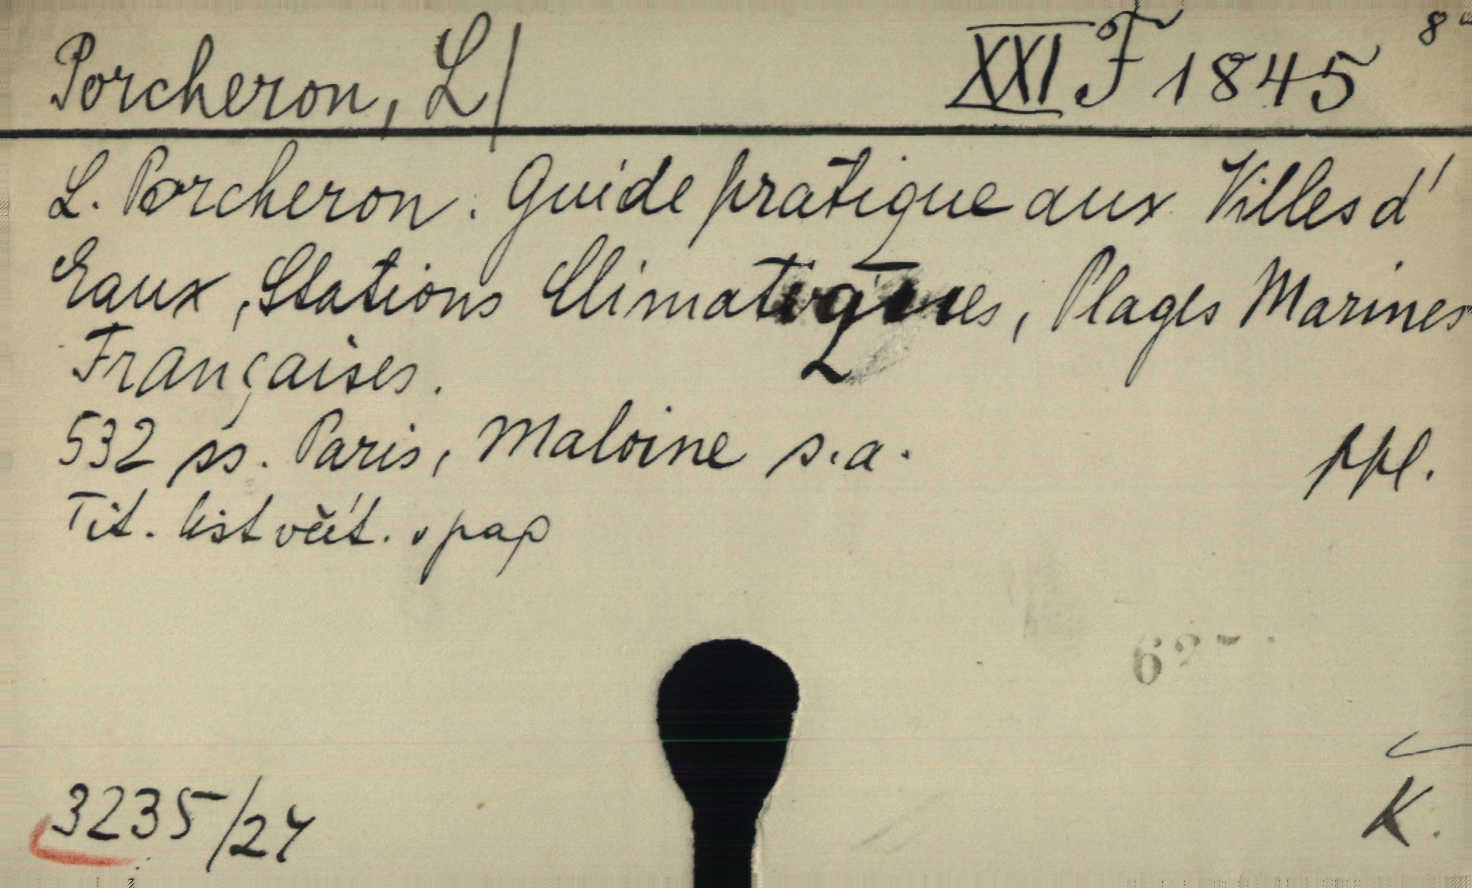 Porcheron, L/ XXI F 1845 8°
L. Porcheron: Guide pratique aux Villes d'
Eaux, Stations Climatiques, Plages Marines
Françaises.
532 ss. Paris, Maloine s.a. ppl.
Tit. list včít. v pap
K.
3235/27